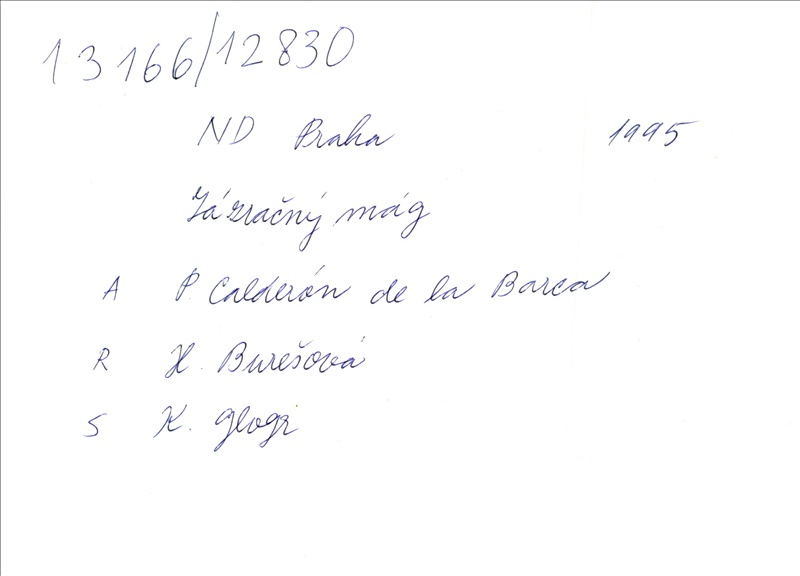 13166/12830
ND Praha 1995
Zázračný mág
A P. Calderón de la Barca
R H. Burešová
S K. Glogr